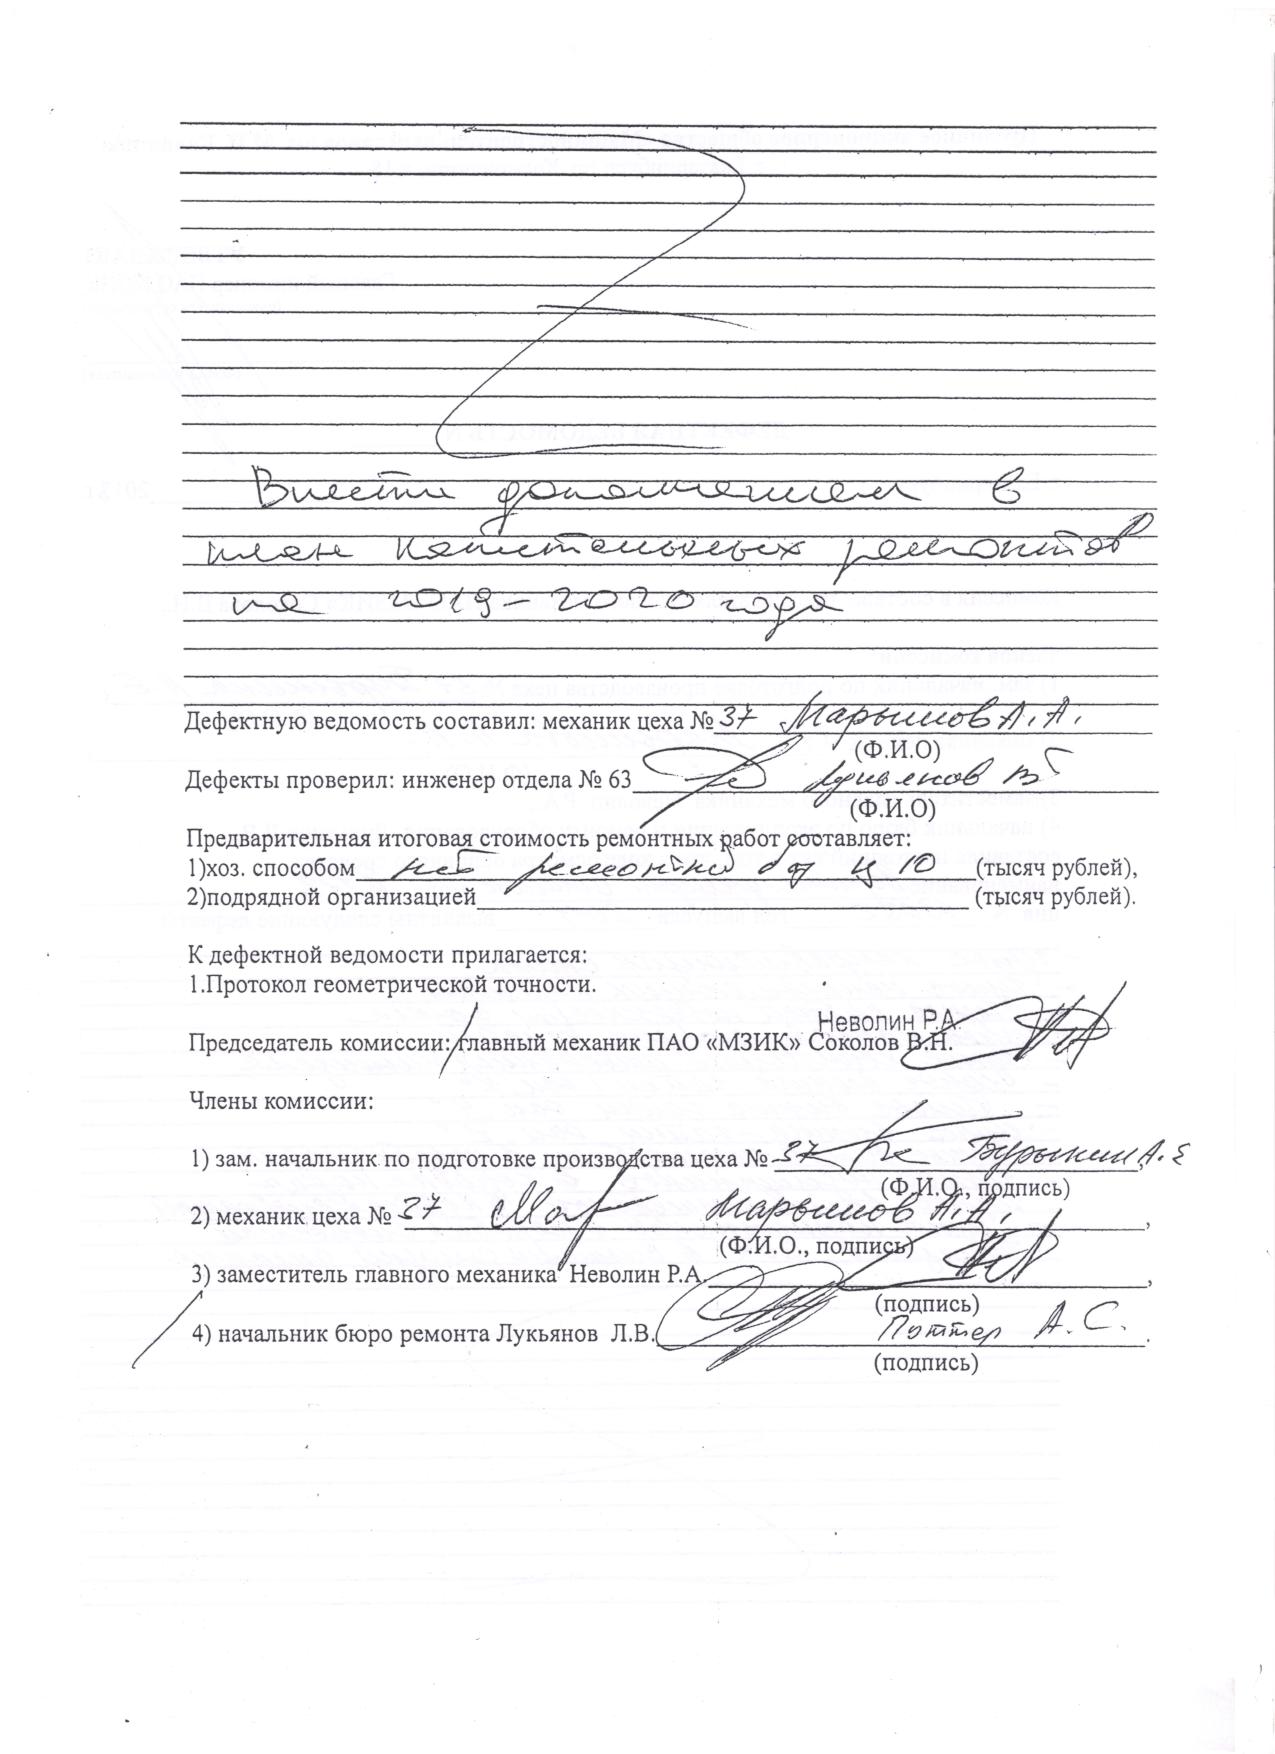 Внести дополнением в
план капитальных ремонтов
на 2019-2020 года
Дефектную ведомость составил: механик цеха № 37 Марьинов А.А.
(Ф.И.О)
Дефекты проверил: инженер отдела № 63
(Ф.И.О)
Предварительная итоговая стоимость ремонтных работ составляет:
1)хоз. способом (тысяч рублей),
2)подрядной организацией (тысяч рублей).
К дефектной ведомости прилагается:
1.Протокол геометрической точности.
Неволин Р.А.
Председатель комиссии: главный механик ПАО «МЗИК» Соколов В.Н.
Члены комиссии:
1) зам. начальник по подготовке производства цеха № 37 Бурынин А.Е
(Ф.И.О., подпись)
2) механик цеха № 37 Марьинов А.А.,
(Ф.И.О., подпись)
3) заместитель главного механика Неволин Р.А.,
(подпись)
4) начальник бюро ремонта Лукьянов Л.В. Поттер А.С.
(подпись)